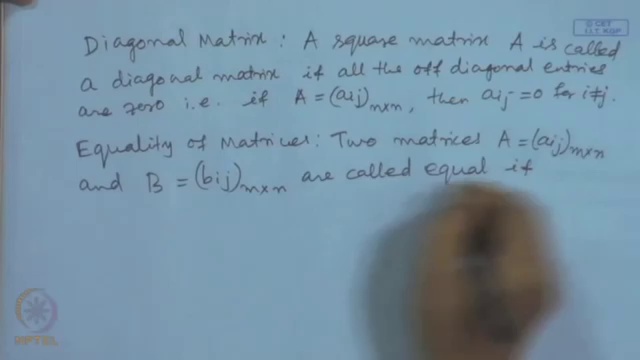 © CET
I.I.T. KGP
Diagonal Matrix : A square matrix A is called
a diagonal matrix if all the off diagonal entries
are zero i.e. if A = (aij)n×n, then aij = 0 for i≠j.
Equality of Matrices: Two matrices A = (aij)m×n
and B = (bij)m×n are called equal if
NPTEL